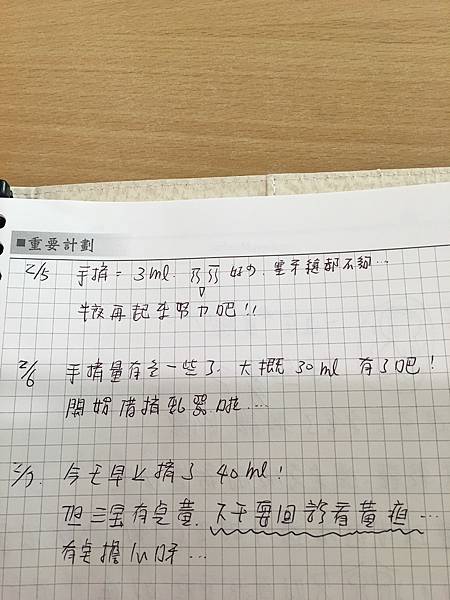 ■重要計劃
2/5 手擠=3ml. ㄋㄟㄋㄟ好少. 塞牙縫都不夠…
半夜再起來努力吧!!
2/6 手擠量有多一些了. 大概30ml 有了吧!
開始借擠乳器啦....
2/7. 今天早上擠了40ml!
但三寶有點黃. 下午要回診看黃疸…
有點擔心呀…